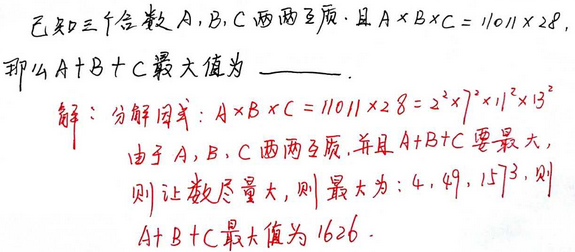 已知三个合数A,B,C两两互质.且A×B×C=11011×28,
那么A+B+C最大值为 ______.
解:分解因式:A×B×C=11011×28=2²×7²×11²×13²
由于A,B,C两两互质.并且A+B+C要最大,
则让数尽量大,则最大为:4,49,1573,则
A+B+C最大值为1626.